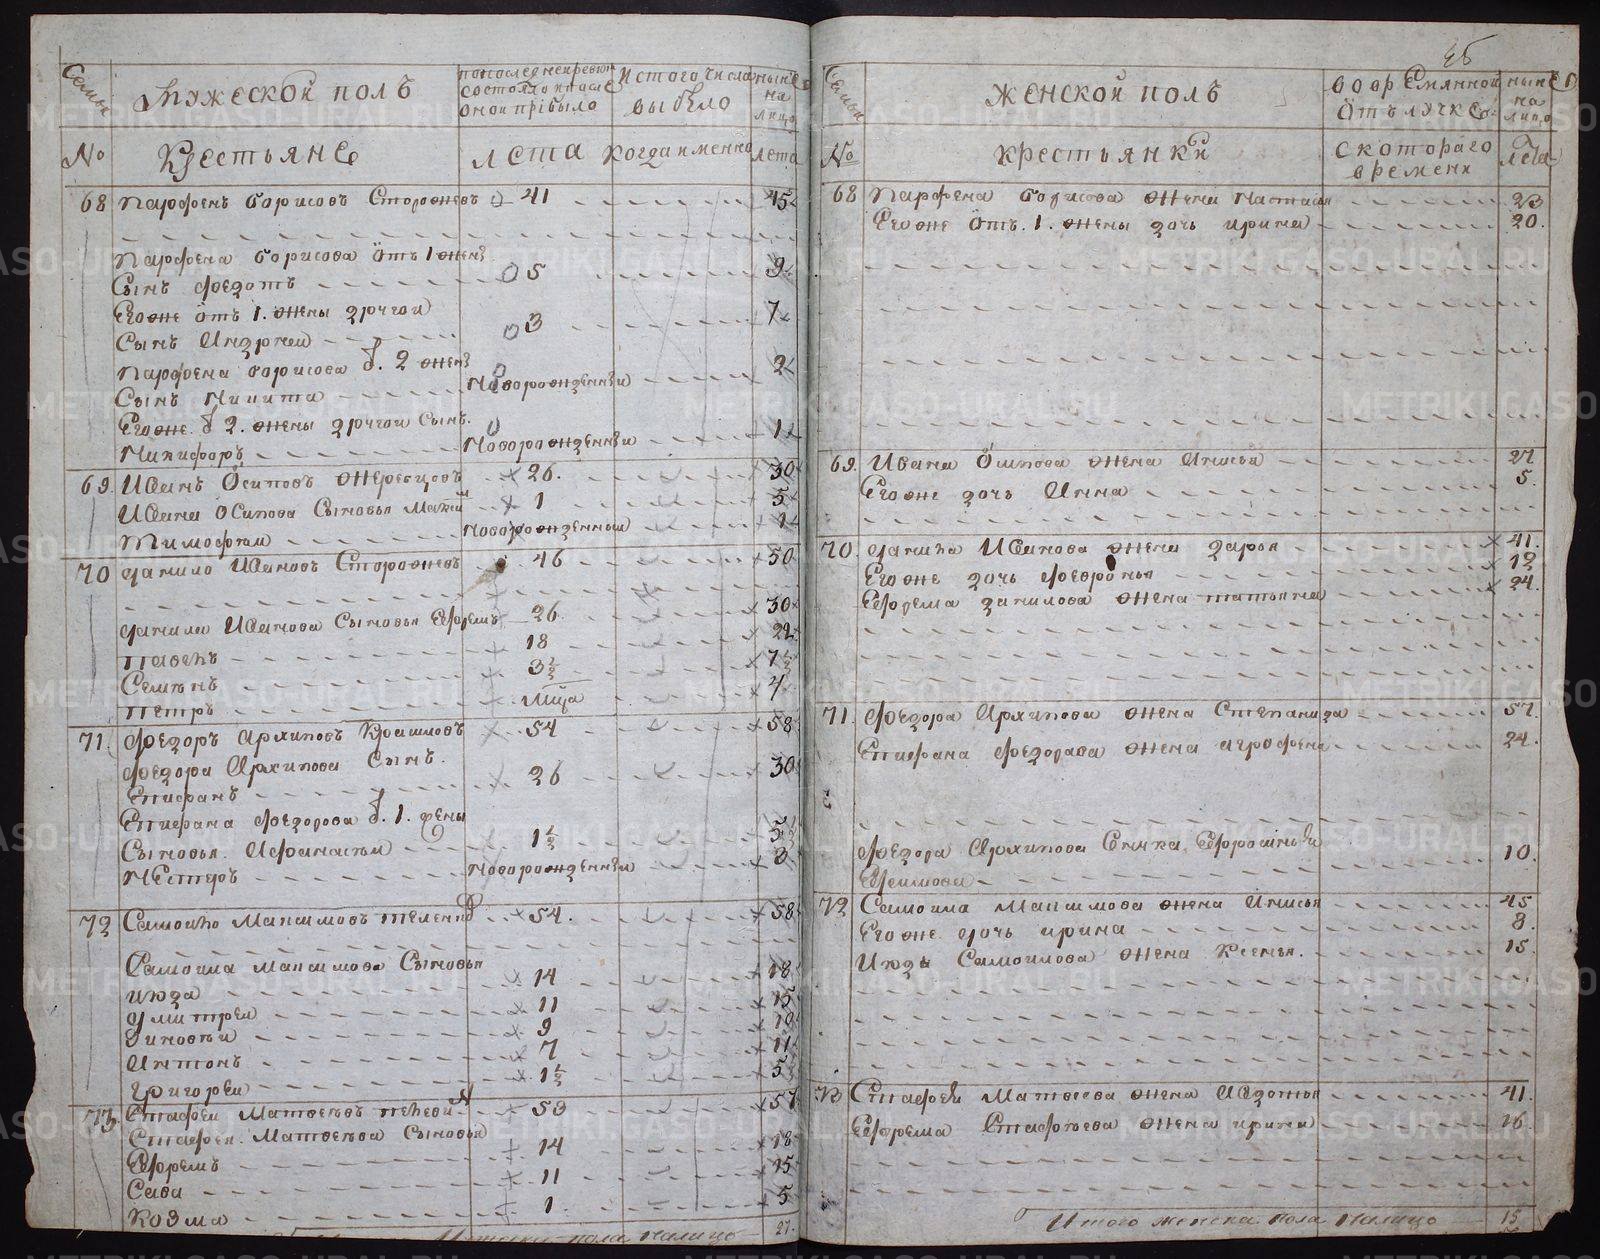 Семьи
Мужеской полъ
попоследнейревизи
состояло ипосле
оной прiбыло
Истого числа
выбыло
ныне
на
лицо
№
Крестьяне
лета
когдаименно
лета
68 Парфенъ Борисовъ Сторожевъ 41 45
Парфена Борисова отъ 1 жены
Сынъ Федотъ 5 9
Егоже отъ 1. жены другой
Сынъ Андрей 3 7
Парфена Борисова 2 жены
Сынъ Никита Новорожденный 2
Егоже 2. жены другой Сынъ
Никифоръ Новорожденный 1
69 Иванъ Осиповъ Жеребцовъ 26. 30
Ивана Осипова Сыновья 1 5
Тимофей Новорожденный 1
70 Данило Ивановъ Сторожевъ 46 50
Данила Иванова Сыновья Ефремъ 26 30
Павелъ 18 22
Семенъ 3½ 7½
Петръ 4
71 Федоръ Архиповъ 54 58
Федора Архипова Сынъ
Епифанъ 26 30
Епифана Федорова 1. жены
Сыновья Афанасей 1½ 5½
Нестеръ Новорожденный 3
72 Самойло Максимовъ 54. 58
Самойла Максимова Сыновья
Июда 14 18
Дмитрей 11 15
Зиновей 9 13
Антонъ 7 11
Григорей 1½ 5½
73 Стафей Матвеевъ 53 57
Стафея Матвеева Сыновья
Ефремъ 14 18
Сава 11 15
Козма 1 5
Итого мужеска пола налицо 27
26
Семьи
Женской полъ
вовременной
Отълучке
ныне
на
лицо
№
Крестьянки
скотораго
времени
Лета
68 Парфена Борисова жена Настасья 23
Егоже отъ 1. жены дочь Ирина 20.
69. Ивана Осипова жена Анисья 27
Егоже дочь Анна 5.
70. Данила Иванова жена Дарья 41.
Егоже дочь Февронья 12
Ефрема Данилова жена Татьяна 24.
71. Федора Архипова жена Степанида 57.
Епифана Федорова жена Аграфена 24.
Федора Архипова 10.
72 Самоила Максимова жена Анисья 45
Егоже дочь Ирина 8.
Июды Самоилова жена Ксенья. 15
73 Стафея Матвеева жена Авдотья 41.
Ефрема Стафеева жена Ирина 16
Итого женска пола налицо 15